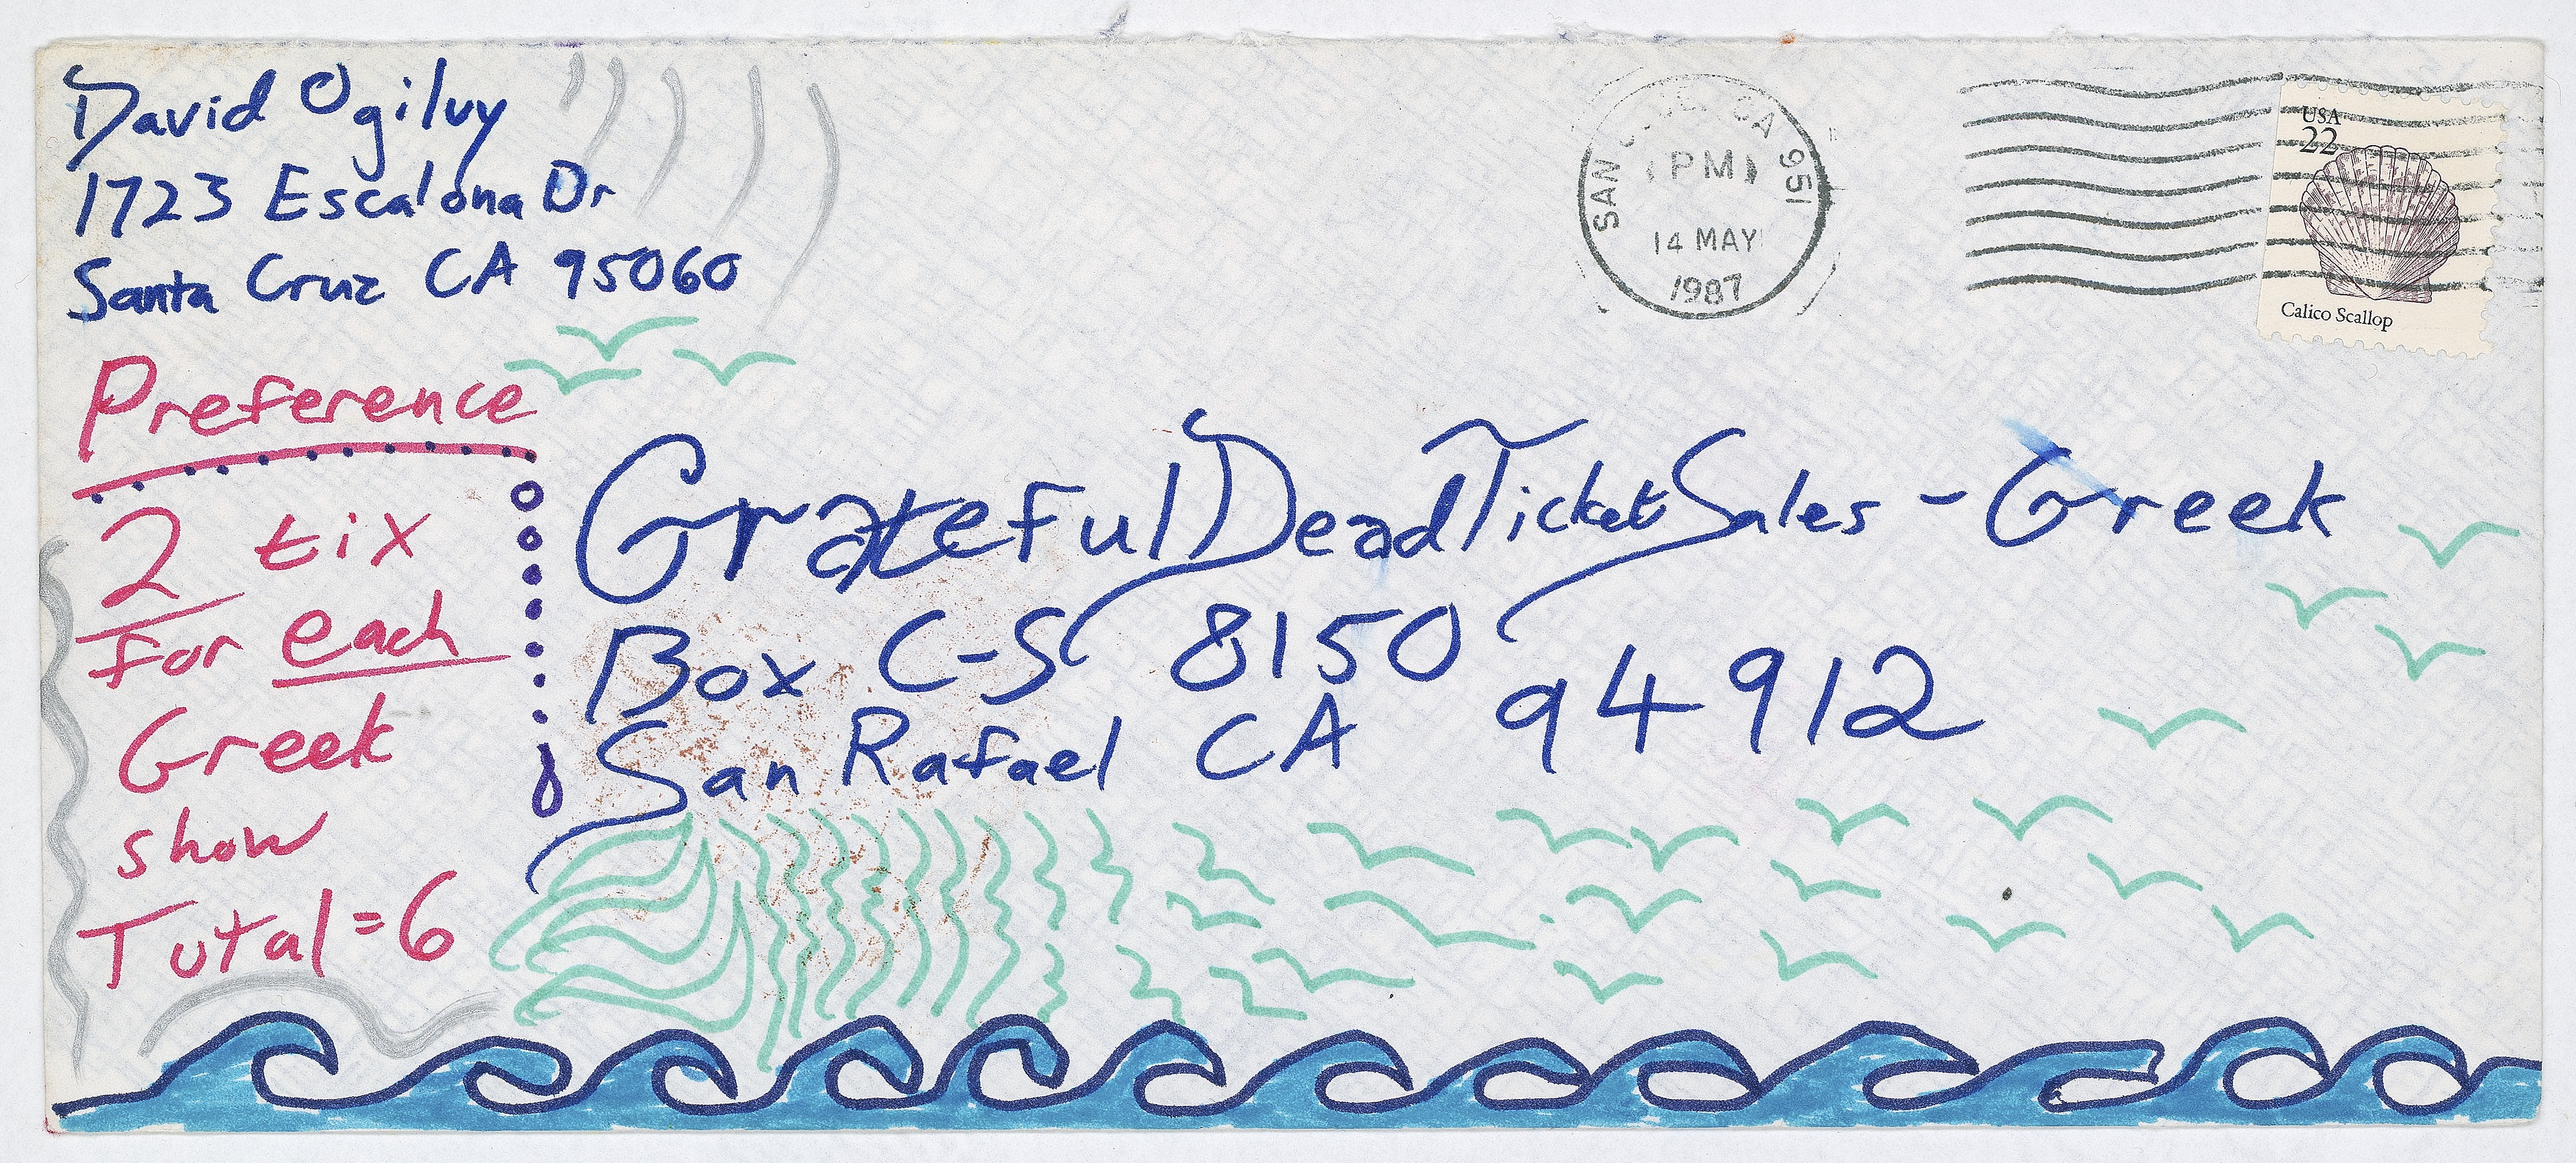 David Ogilvy
1723 Escalona Dr
Santa Cruz CA 95060
PM
14 MAY
1987
SAN CA 951
USA
22
Calico Scallop
Preference
2 tix
for each
Greek
show
Total=6
Grateful Dead Ticket Sales - Greek
Box C-S 8150
San Rafael CA 94912